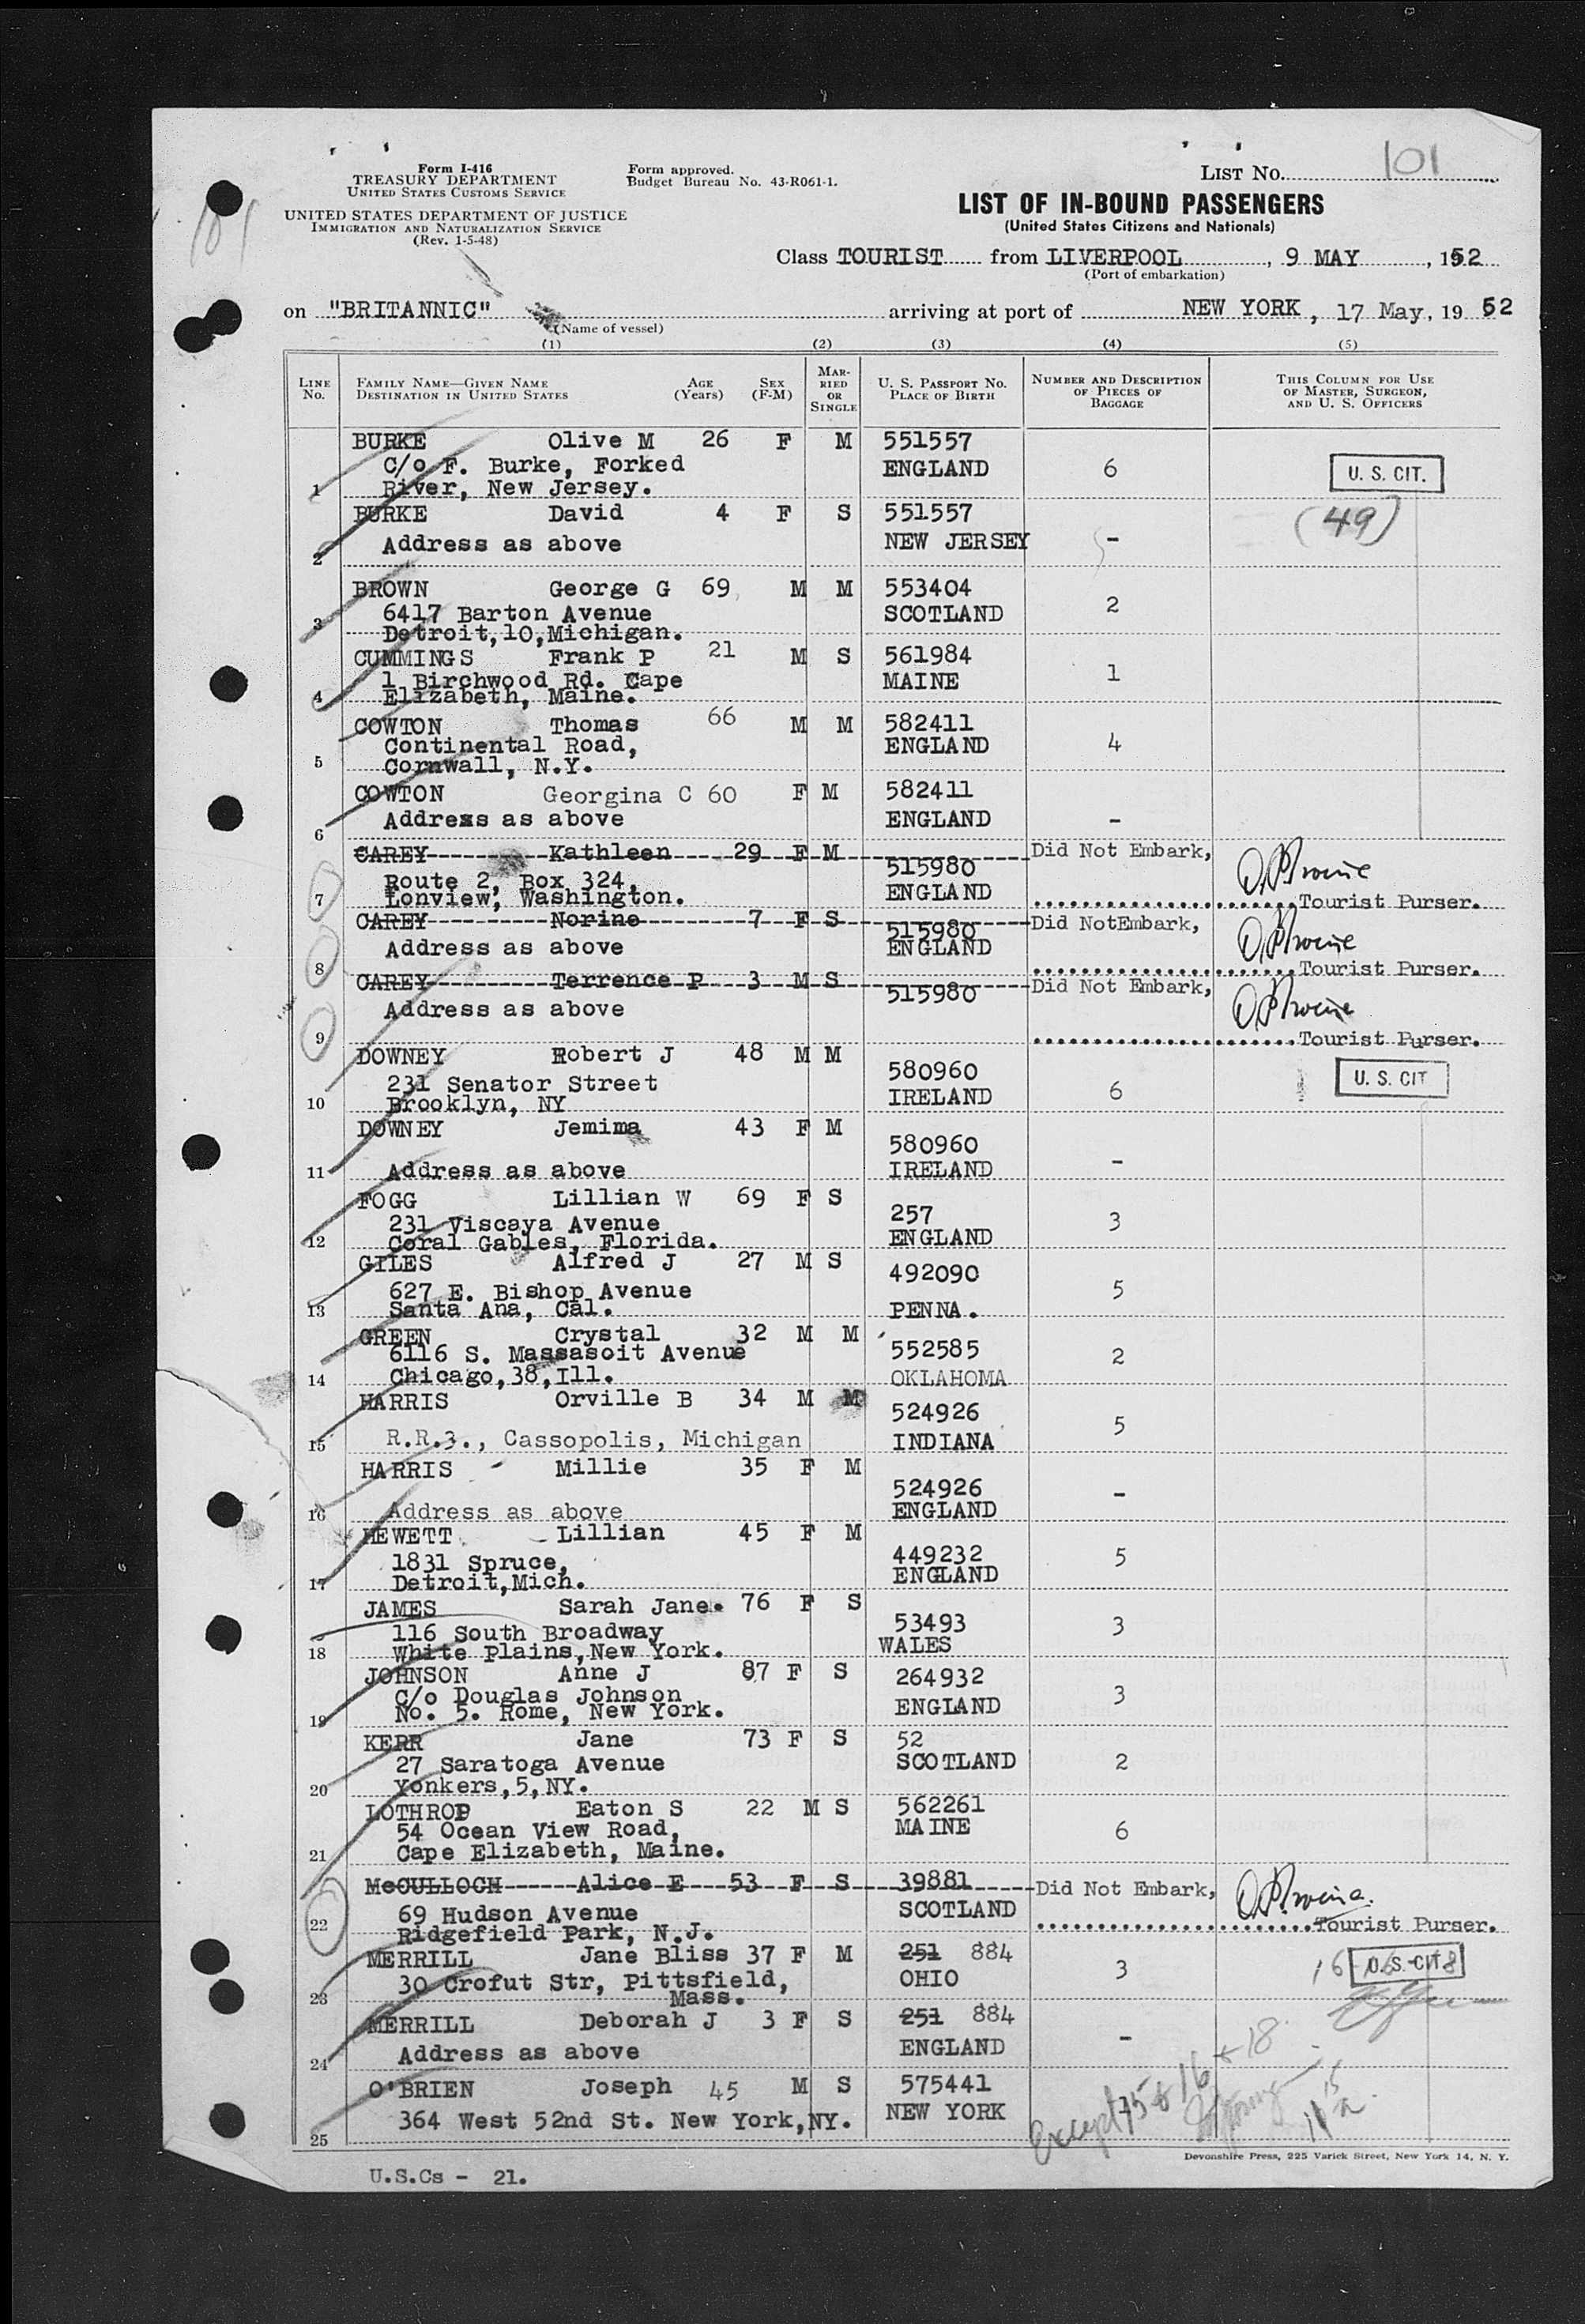 Form I-416
TREASURY DEPARTMENT
UNITED STATES CUSTOMS SERVICE
UNITED STATES DEPARTMENT OF JUSTICE
IMMIGRATION AND NATURALIZATION SERVICE
(Rev. 1-5-48)
Form approved.
Budget Bureau No. 43-R061-1.
LIST NO. 101
LIST OF IN-BOUND PASSENGERS
(United States Citizens and Nationals)
Class TOURIST from LIVERPOOL, 9 MAY, 1952
(Port of embarkation)
on "BRITANNIC" arriving at port of NEW YORK, 17 May, 1952
(Name of vessel)
(1) (2) (3) (4) (5)
LINE NO. FAMILY NAME—GIVEN NAME DESTINATION IN UNITED STATES AGE (Years) SEX (F-M) MARRIED OR SINGLE U. S. PASSPORT NO. PLACE OF BIRTH NUMBER AND DESCRIPTION OF PIECES OF BAGGAGE THIS COLUMN FOR USE OF MASTER, SURGEON, AND U. S. OFFICERS
BURKE Olive M 26 F M 551557
C/o F. Burke, Forked ENGLAND 6 U. S. CIT.
1 River, New Jersey.
BURKE David 4 F S 551557 (49)
2 Address as above NEW JERSEY -
BROWN George G 69 M M 553404
6417 Barton Avenue SCOTLAND 2
3 Detroit,10,Michigan.
CUMMINGS Frank P 21 M S 561984
1 Birchwood Rd. Cape MAINE 1
4 Elizabeth, Maine.
COWTON Thomas 66 M M 582411
Continental Road, ENGLAND 4
5 Cornwall, N.Y.
COWTON Georgina C 60 F M 582411
6 Address as above ENGLAND -
CAREY Kathleen 29 F M 515980 Did Not Embark,
Route 2, Box 324, ENGLAND
7 Lonview, Washington. Tourist Purser.
CAREY Norine 7 F S 515980 Did NotEmbark,
8 Address as above ENGLAND Tourist Purser.
CAREY Terrence P 3 M S 515980 Did Not Embark,
9 Address as above Tourist Purser.
DOWNEY Robert J 48 M M 580960 U. S. CIT
231 Senator Street IRELAND 6
10 Brooklyn, NY
DOWNEY Jemima 43 F M 580960
11 Address as above IRELAND -
FOGG Lillian W 69 F S 257
231 Viscaya Avenue ENGLAND 3
12 Coral Gables, Florida.
GILES Alfred J 27 M S 492090
627 E. Bishop Avenue 5
13 Santa Ana, Cal. PENNA.
GREEN Crystal 32 M M 552585
6116 S. Massasoit Avenue 2
14 Chicago,38,Ill. OKLAHOMA
HARRIS Orville B 34 M M 524926
15 R.R.3., Cassopolis, Michigan INDIANA 5
HARRIS Millie 35 F M 524926
16 Address as above ENGLAND -
HEWETT Lillian 45 F M 449232
1831 Spruce, ENGLAND 5
17 Detroit,Mich.
JAMES Sarah Jane. 76 F S 53493
116 South Broadway WALES 3
18 White Plains,New York.
JOHNSON Anne J 87 F S 264932
C/o Douglas Johnson ENGLAND 3
19 No. 5. Rome, New York.
KERR Jane 73 F S 52
27 Saratoga Avenue SCOTLAND 2
20 Yonkers,5,NY.
LOTHROP Eaton S 22 M S 562261
54 Ocean View Road, MAINE 6
21 Cape Elizabeth, Maine.
McCULLOCH Alice E 53 F S 39881 Did Not Embark,
69 Hudson Avenue SCOTLAND
22 Ridgefield Park, N.J. Tourist Purser.
MERRILL Jane Bliss 37 F M 251 884
30 Crofut Str, Pittsfield, OHIO 3 U. S. CIT
23 Mass.
MERRILL Deborah J 3 F S 251 884
24 Address as above ENGLAND -
O'BRIEN Joseph 45 M S 575441
364 West 52nd St. New York,NY. NEW YORK
25
Except
Devonshire Press, 225 Varick Street, New York 14, N. Y.
U.S.Cs - 21.